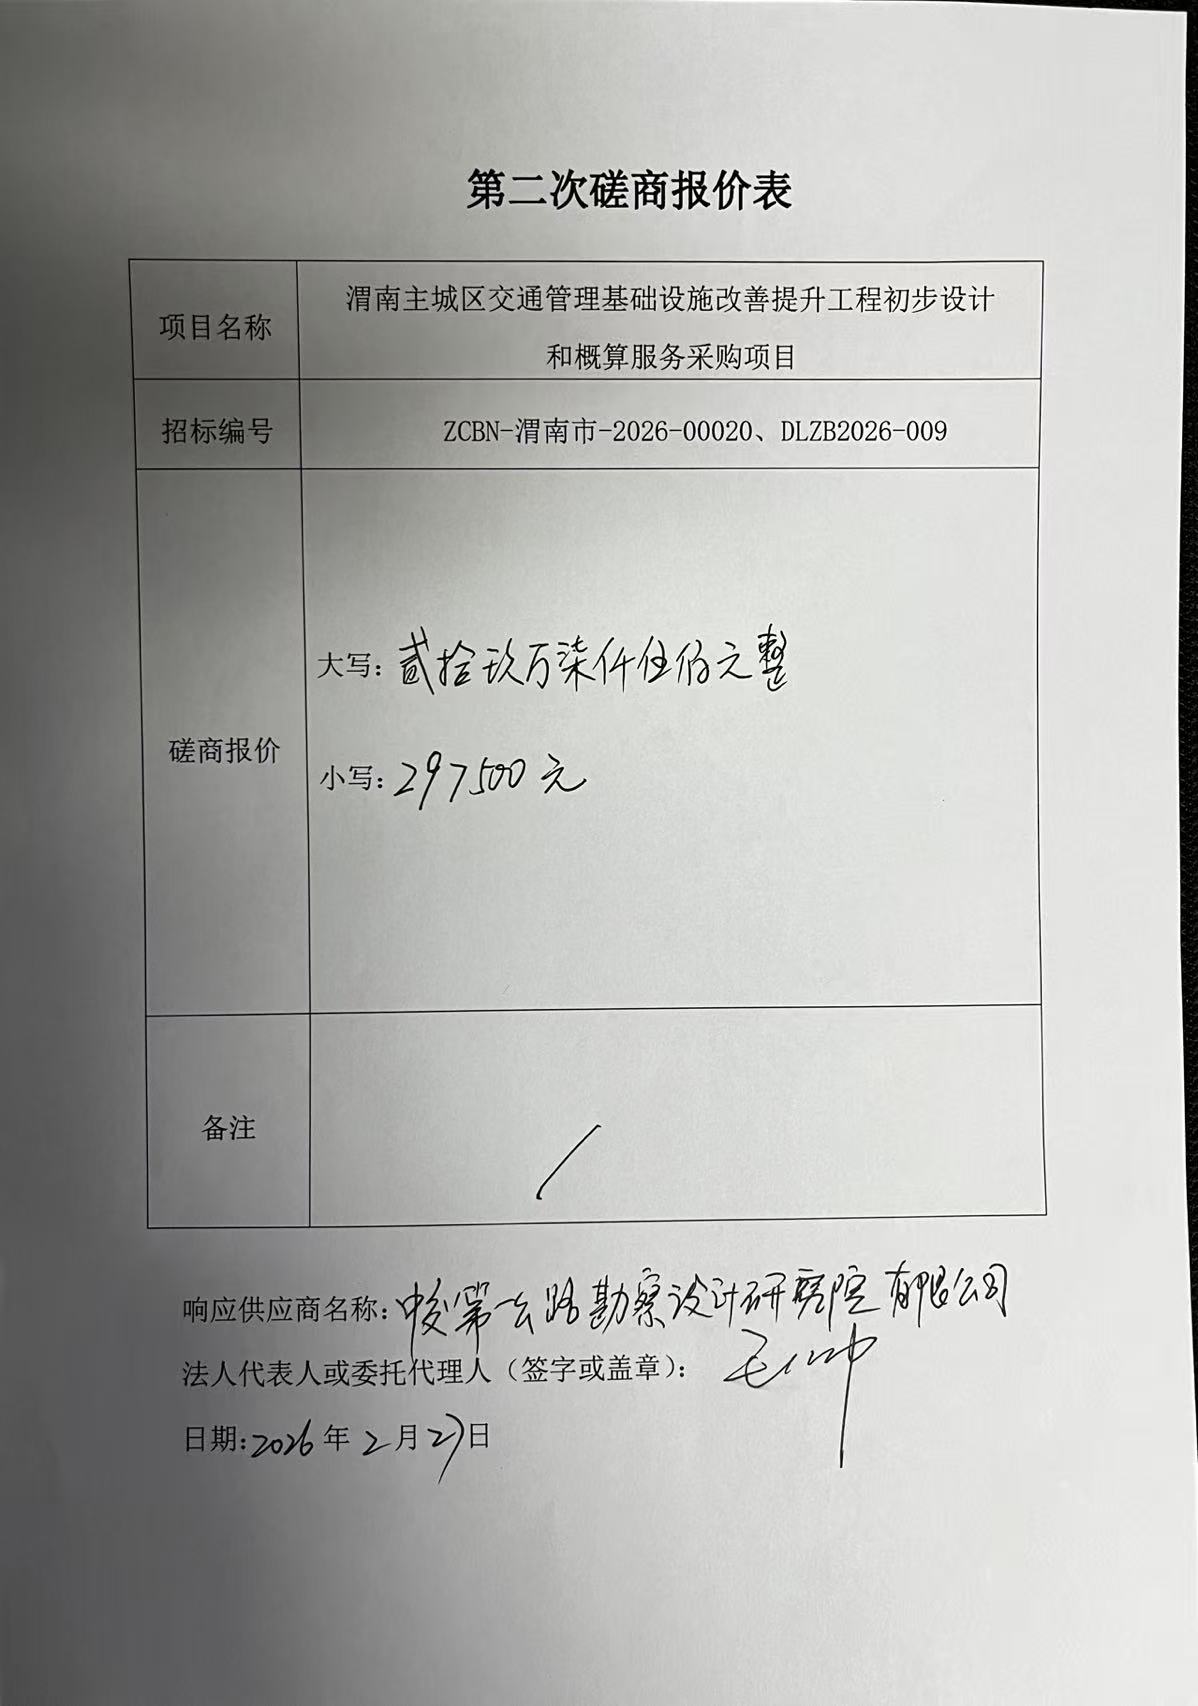 第二次磋商报价表
项目名称
渭南主城区交通管理基础设施改善提升工程初步设计
和概算服务采购项目
招标编号
ZCBN-渭南市-2026-00020、DLZB2026-009
磋商报价
大写: 贰拾玖万柒仟伍佰元整
小写: 297500元
备注
/
响应供应商名称: 中交第一公路勘察设计研究院有限公司
法人代表人或委托代理人（签字或盖章）:
日期: 2026年2月27日